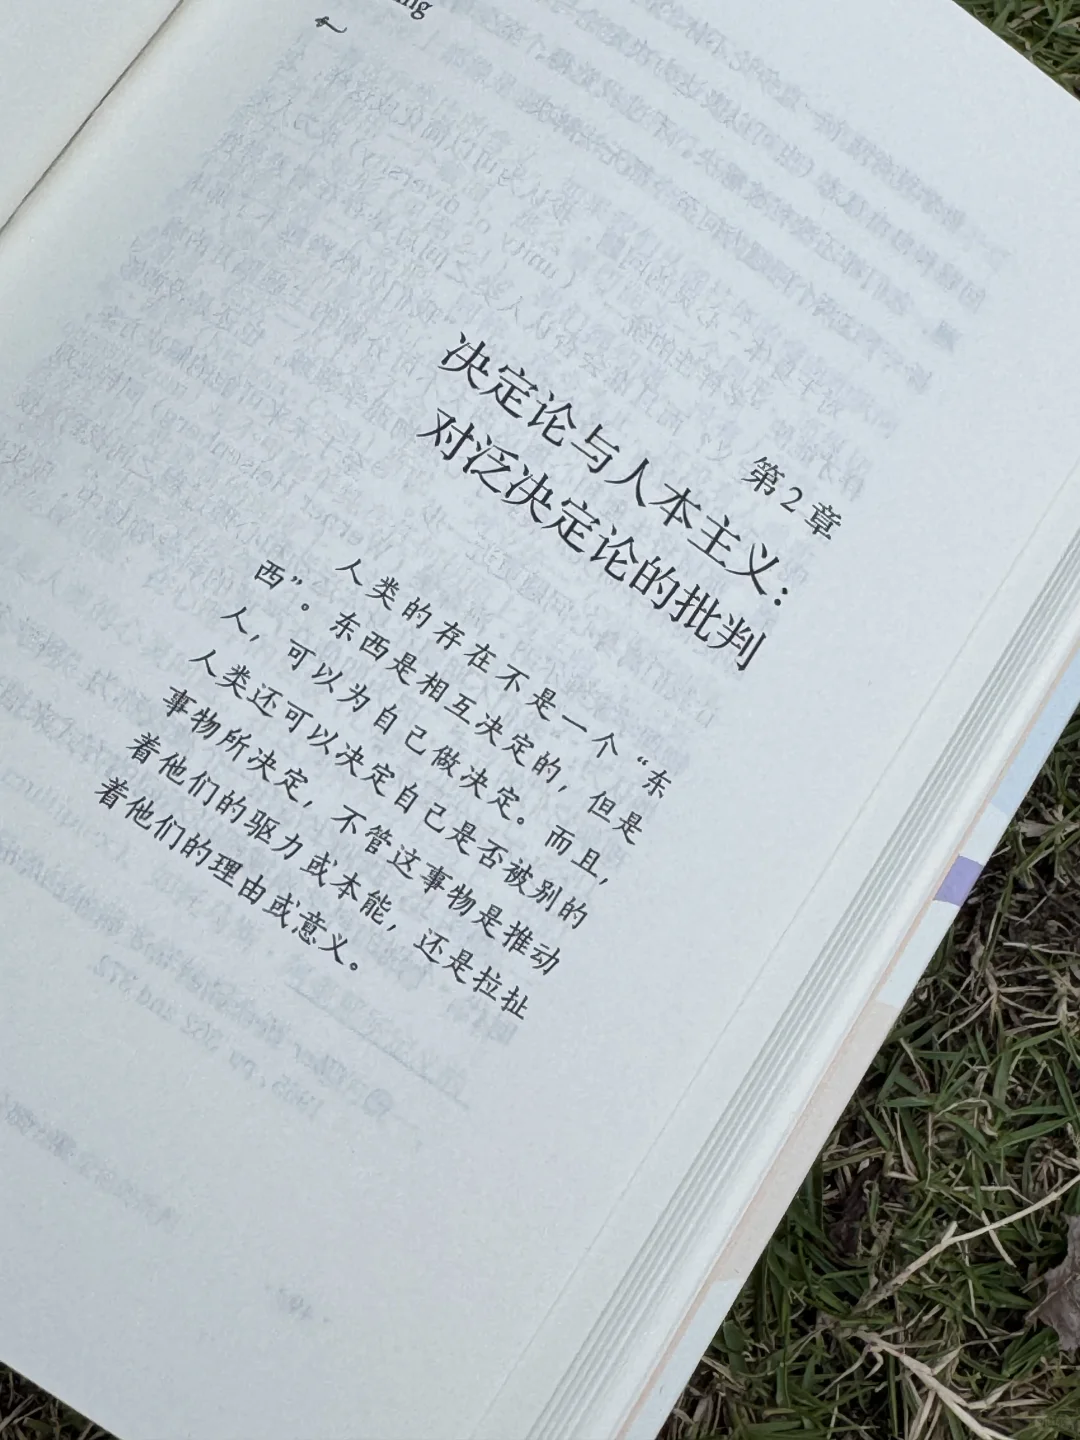 第2章
决定论与人本主义：
对泛决定论的批判
人类的存在不是一个“东
西”。东西是相互决定的，但是
人，可以为自己做决定。而且，
人类还可以决定自己是否被别的
事物所决定，不管这事物是推动
着他们的驱力或本能，还是拉扯
着他们的理由或意义。